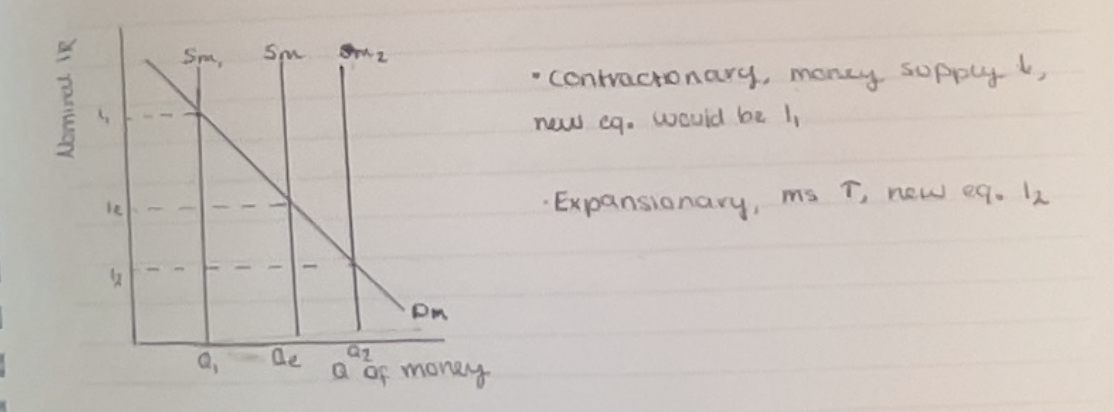 Nominal IR
Sm₁ Sm Sm₂
I₁
Ie
I₂
Dm
Q₁ Qe Q₂
Q of money
• Contractionary, money supply ↓,
new eq. would be I₁
• Expansionary, ms ↑, new eq. I₂